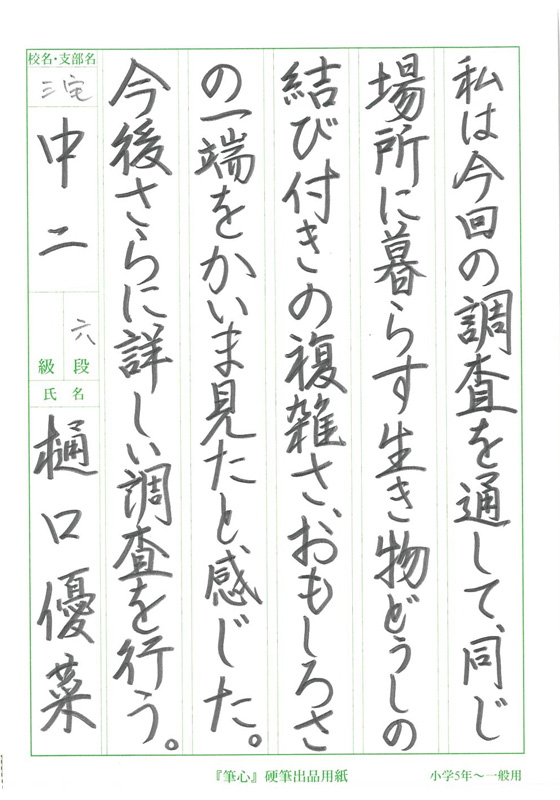 私は今回の調査を通して、同じ
場所に暮らす生き物どうしの
結び付きの複雑さ、おもしろさ
の一端をかいま見たと感じた。
今後さらに詳しい調査を行う。
校名・支部名
三宅
中二
六
級 段
氏名
樋口優菜
『筆心』硬筆出品用紙
小学5年〜一般用